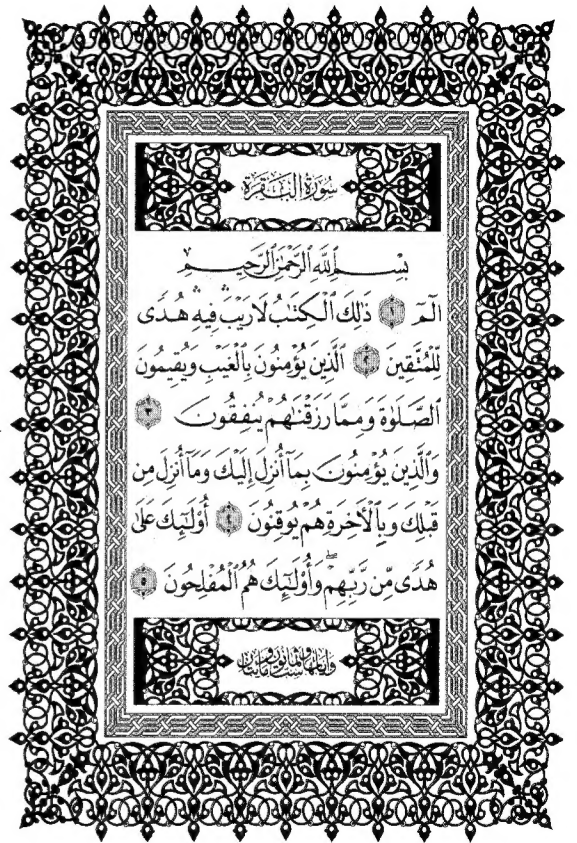 سُورَةُ البَقَرَةِ
بِسْمِ ٱللَّهِ ٱلرَّحْمَٰنِ ٱلرَّحِيمِ
الٓمٓ ١ ذَٰلِكَ ٱلْكِتَٰبُ لَا رَيْبَۛ فِيهِۛ هُدًى
لِّلْمُتَّقِينَ ٢ ٱلَّذِينَ يُؤْمِنُونَ بِٱلْغَيْبِ وَيُقِيمُونَ
ٱلصَّلَوٰةَ وَمِمَّا رَزَقْنَٰهُمْ يُنفِقُونَ ٣
وَٱلَّذِينَ يُؤْمِنُونَ بِمَآ أُنزِلَ إِلَيْكَ وَمَآ أُنزِلَ مِن
قَبْلِكَ وَبِٱلْأَخِرَةِ هُمْ يُوقِنُونَ ٤ أُو۟لَٰٓئِكَ عَلَىٰ
هُدًى مِّن رَّبِّهِمْۖ وَأُو۟لَٰٓئِكَ هُمُ ٱلْمُفْلِحُونَ ٥
وآياتها ست وثمانون ومائتان